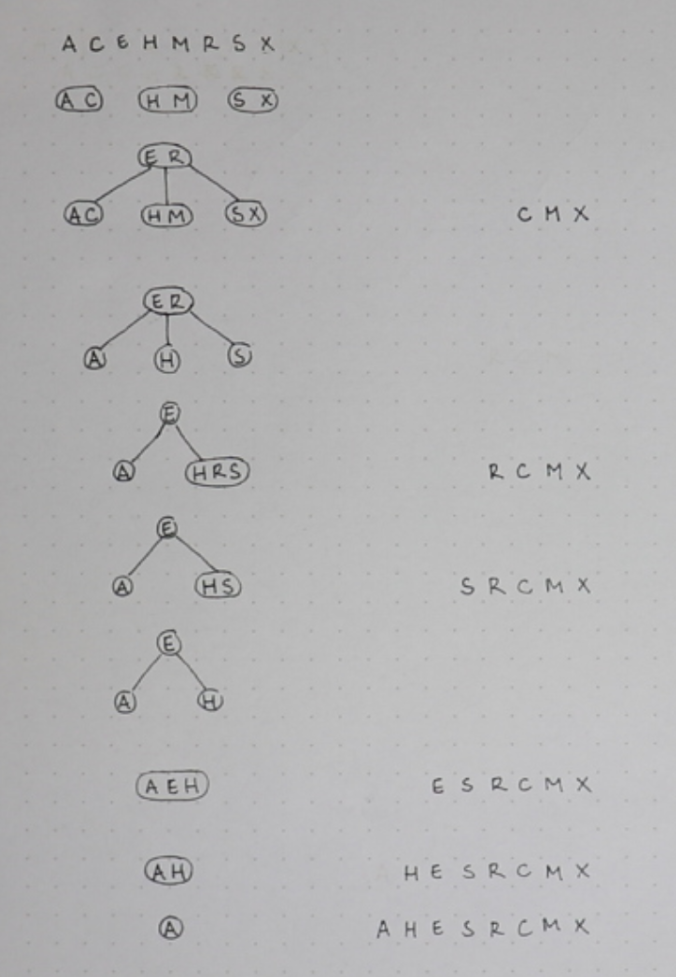 A C E H M R S X
A C H M S X
E R
A C H M S X C M X
E R
A H S
E
A H R S R C M X
E
A H S S R C M X
E
A H
A E H E S R C M X
A H H E S R C M X
A A H E S R C M X